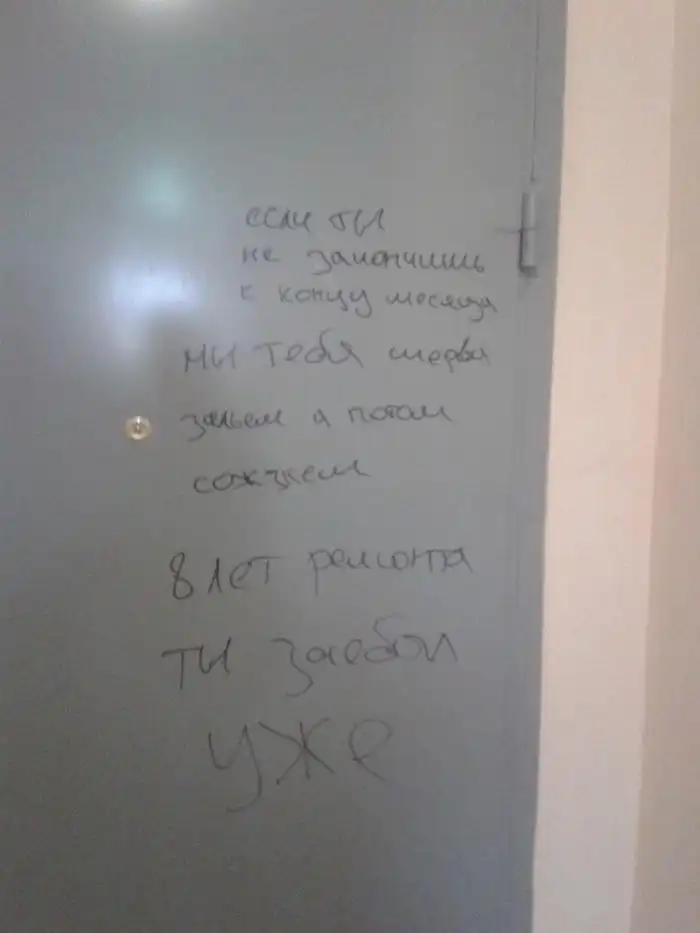 если ты
не закончишь
к концу месяца
мы тебя
зальем а потом
сожжем
8 лет ремонта
ты заебал
уже